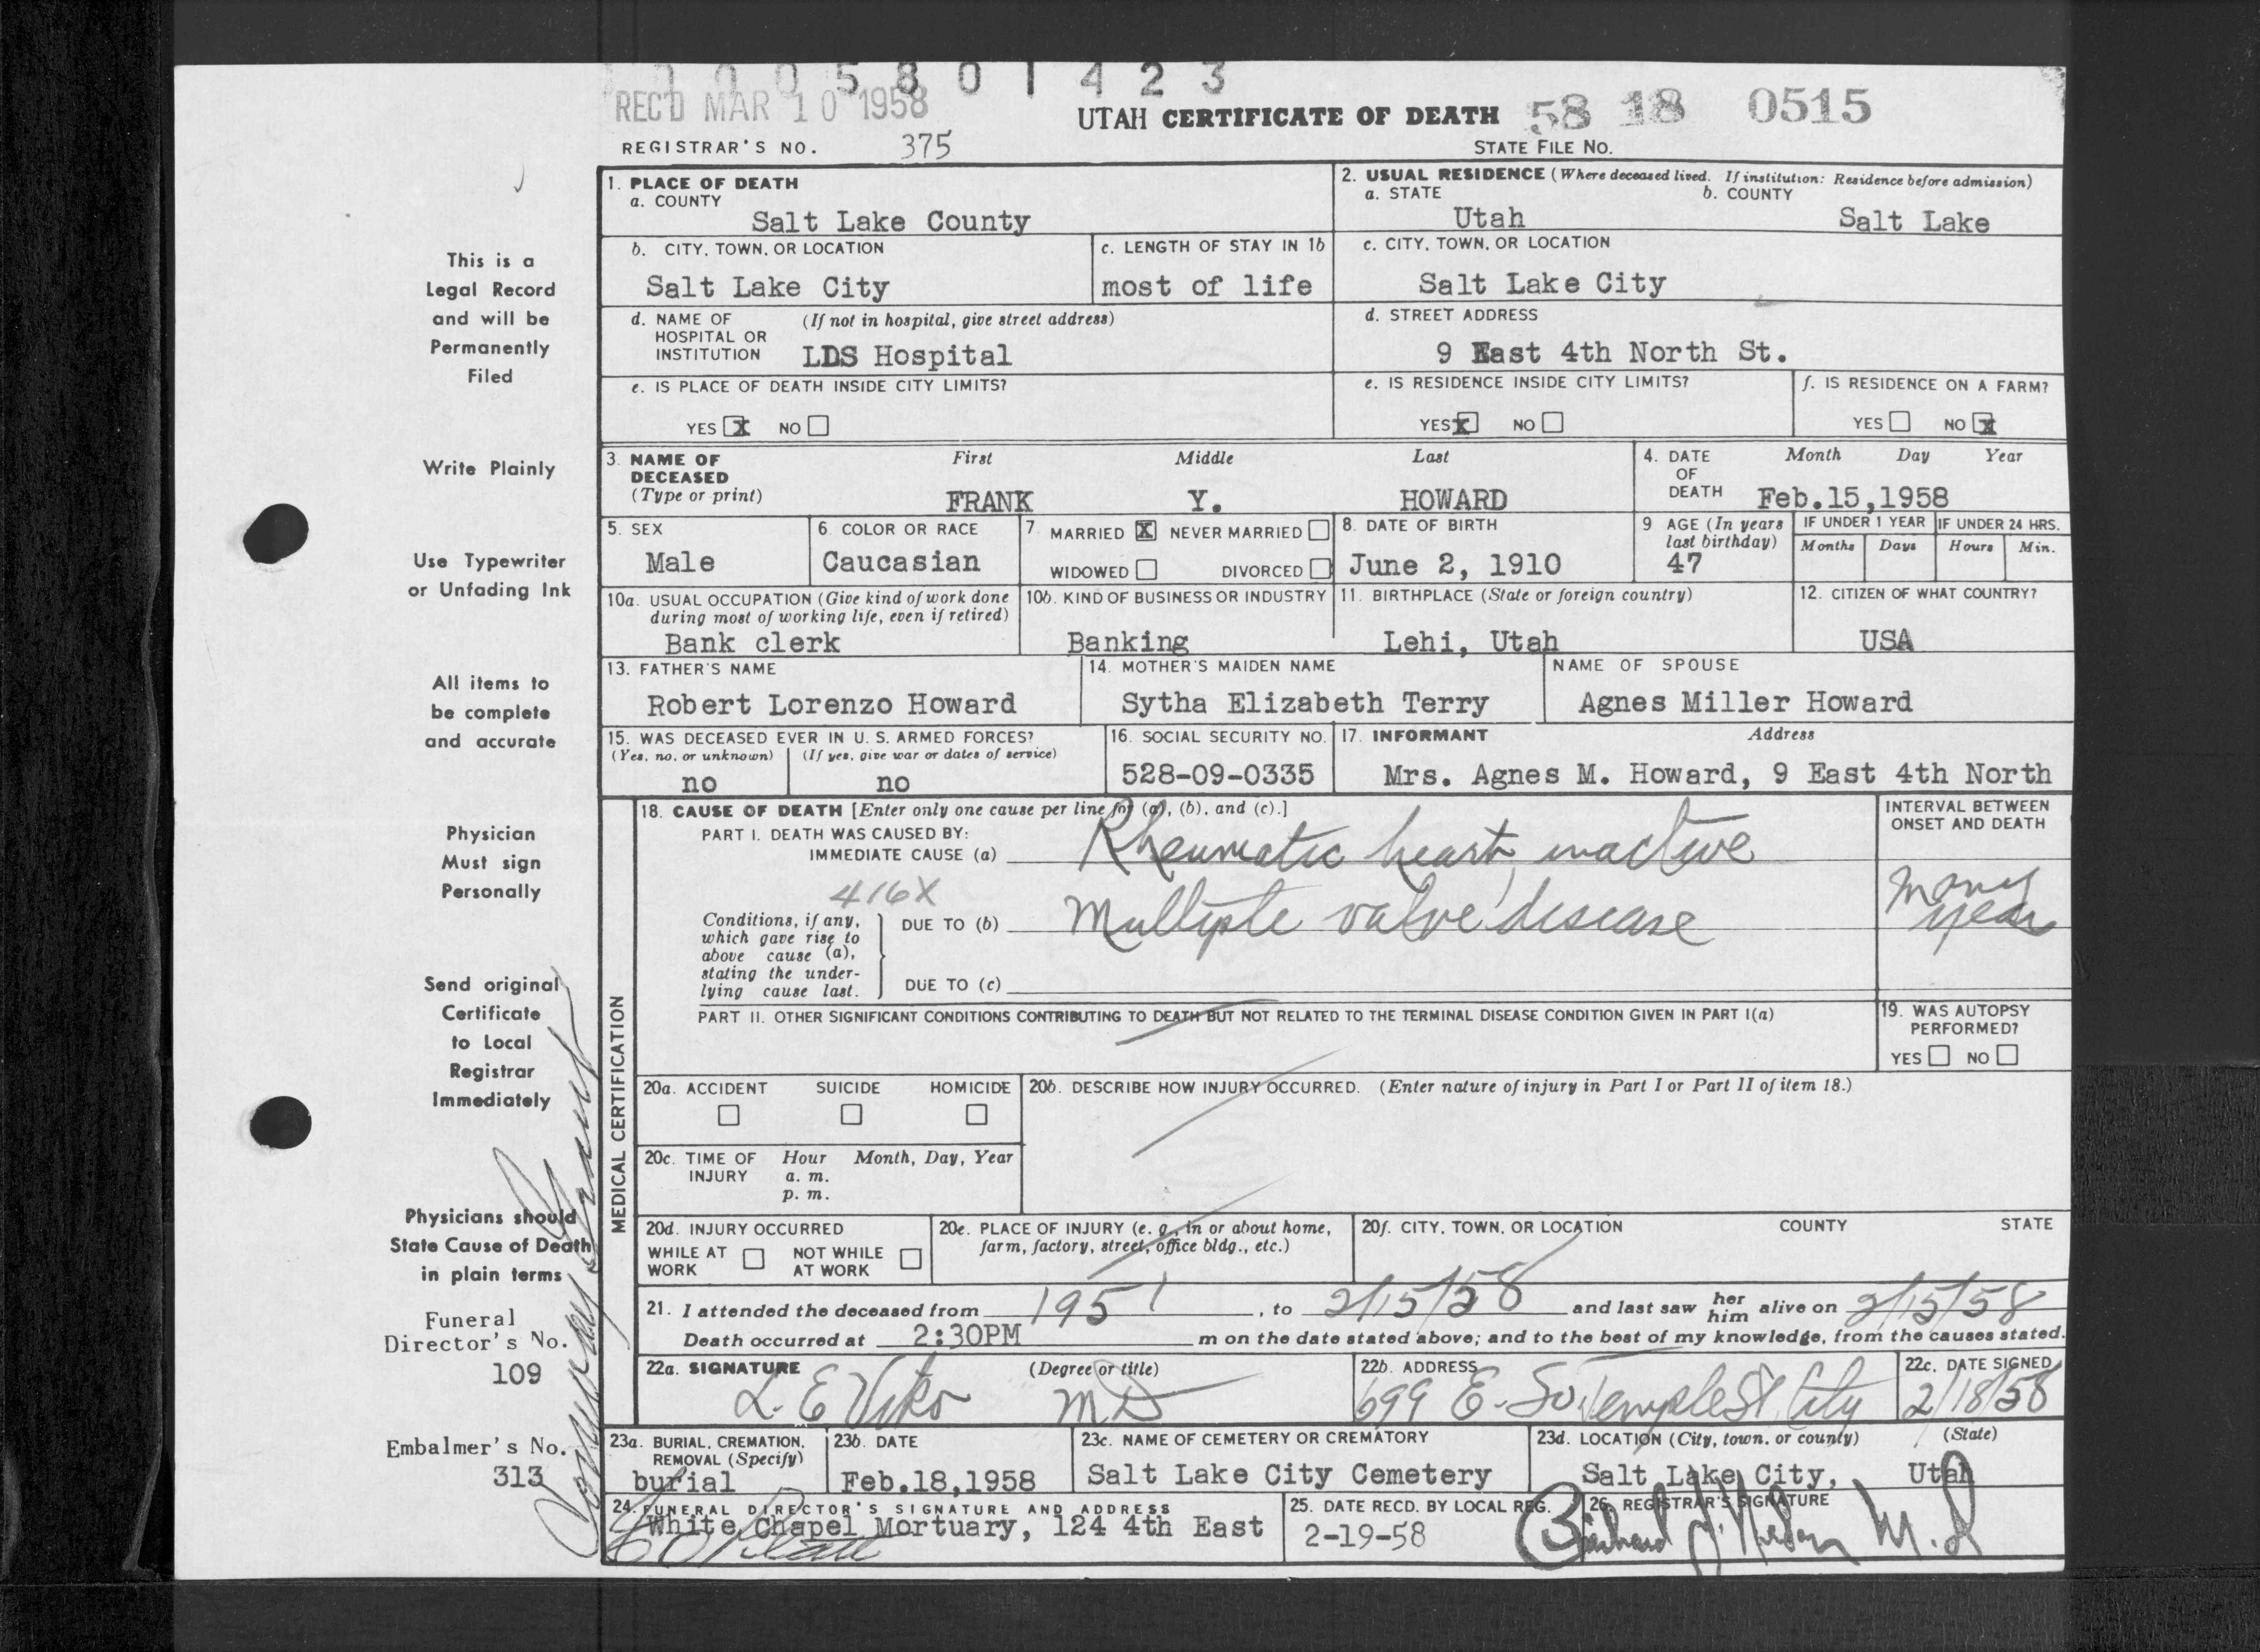 0 0 0 5 8 0 1 4 2 3
REC'D MAR 10 1958
UTAH CERTIFICATE OF DEATH 58 18 0515
REGISTRAR'S NO. 375 STATE FILE NO.
1. PLACE OF DEATH
a. COUNTY
Salt Lake County
2. USUAL RESIDENCE (Where deceased lived. If institution: Residence before admission)
a. STATE b. COUNTY
Utah Salt Lake
b. CITY, TOWN, OR LOCATION
Salt Lake City
c. LENGTH OF STAY IN 1b
most of life
c. CITY, TOWN, OR LOCATION
Salt Lake City
d. NAME OF (If not in hospital, give street address)
HOSPITAL OR
INSTITUTION LDS Hospital
d. STREET ADDRESS
9 East 4th North St.
e. IS PLACE OF DEATH INSIDE CITY LIMITS?
YES X NO
e. IS RESIDENCE INSIDE CITY LIMITS?
YES X NO
f. IS RESIDENCE ON A FARM?
YES NO X
3. NAME OF DECEASED (Type or print)
First Middle Last
FRANK Y. HOWARD
4. DATE OF DEATH
Month Day Year
Feb.15,1958
5. SEX
Male
6. COLOR OR RACE
Caucasian
7. MARRIED X NEVER MARRIED
WIDOWED DIVORCED
8. DATE OF BIRTH
June 2, 1910
9 AGE (In years
last birthday)
47
IF UNDER 1 YEAR IF UNDER 24 HRS.
Months Days Hours Min.
10a. USUAL OCCUPATION (Give kind of work done
during most of working life, even if retired)
Bank clerk
10b. KIND OF BUSINESS OR INDUSTRY
Banking
11. BIRTHPLACE (State or foreign country)
Lehi, Utah
12. CITIZEN OF WHAT COUNTRY?
USA
13. FATHER'S NAME
Robert Lorenzo Howard
14. MOTHER'S MAIDEN NAME
Sytha Elizabeth Terry
NAME OF SPOUSE
Agnes Miller Howard
15. WAS DECEASED EVER IN U. S. ARMED FORCES?
(Yes, no, or unknown) (If yes, give war or dates of service)
no no
16. SOCIAL SECURITY NO.
528-09-0335
17. INFORMANT Address
Mrs. Agnes M. Howard, 9 East 4th North
MEDICAL CERTIFICATION
18. CAUSE OF DEATH [Enter only one cause per line for (a), (b), and (c).]
PART I. DEATH WAS CAUSED BY:
IMMEDIATE CAUSE (a) Rheumatic heart, inactive
416X
Conditions, if any,
which gave rise to
above cause (a),
stating the under-
lying cause last.
DUE TO (b) Multiple valve disease
DUE TO (c)
INTERVAL BETWEEN
ONSET AND DEATH
many
years
PART II. OTHER SIGNIFICANT CONDITIONS CONTRIBUTING TO DEATH BUT NOT RELATED TO THE TERMINAL DISEASE CONDITION GIVEN IN PART I(a)
19. WAS AUTOPSY
PERFORMED?
YES NO
20a. ACCIDENT SUICIDE HOMICIDE
20b. DESCRIBE HOW INJURY OCCURRED. (Enter nature of injury in Part I or Part II of item 18.)
20c. TIME OF INJURY
Hour Month, Day, Year
a. m.
p. m.
20d. INJURY OCCURRED
WHILE AT WORK NOT WHILE AT WORK
20e. PLACE OF INJURY (e. g., in or about home,
farm, factory, street, office bldg., etc.)
20f. CITY, TOWN, OR LOCATION COUNTY STATE
21. I attended the deceased from 1951, to 2/15/58 and last saw her him alive on 2/15/58
Death occurred at 2:30PM m on the date stated above; and to the best of my knowledge, from the causes stated.
22a. SIGNATURE (Degree or title)
L. E Viko MD
22b. ADDRESS
699 E. So. Temple St. City
22c. DATE SIGNED
2/18/58
23a. BURIAL, CREMATION,
REMOVAL (Specify)
burial
23b. DATE
Feb.18,1958
23c. NAME OF CEMETERY OR CREMATORY
Salt Lake City Cemetery
23d. LOCATION (City, town, or county) (State)
Salt Lake City, Utah
24. FUNERAL DIRECTOR'S SIGNATURE AND ADDRESS
White Chapel Mortuary, 124 4th East
25. DATE RECD. BY LOCAL REG.
2-19-58
26. REGISTRAR'S SIGNATURE
M.D
This is a
Legal Record
and will be
Permanently
Filed
Write Plainly
Use Typewriter
or Unfading Ink
All items to
be complete
and accurate
Physician
Must sign
Personally
Send original
Certificate
to Local
Registrar
Immediately
Physicians should
State Cause of Death
in plain terms
Funeral
Director's No.
109
Embalmer's No.
313